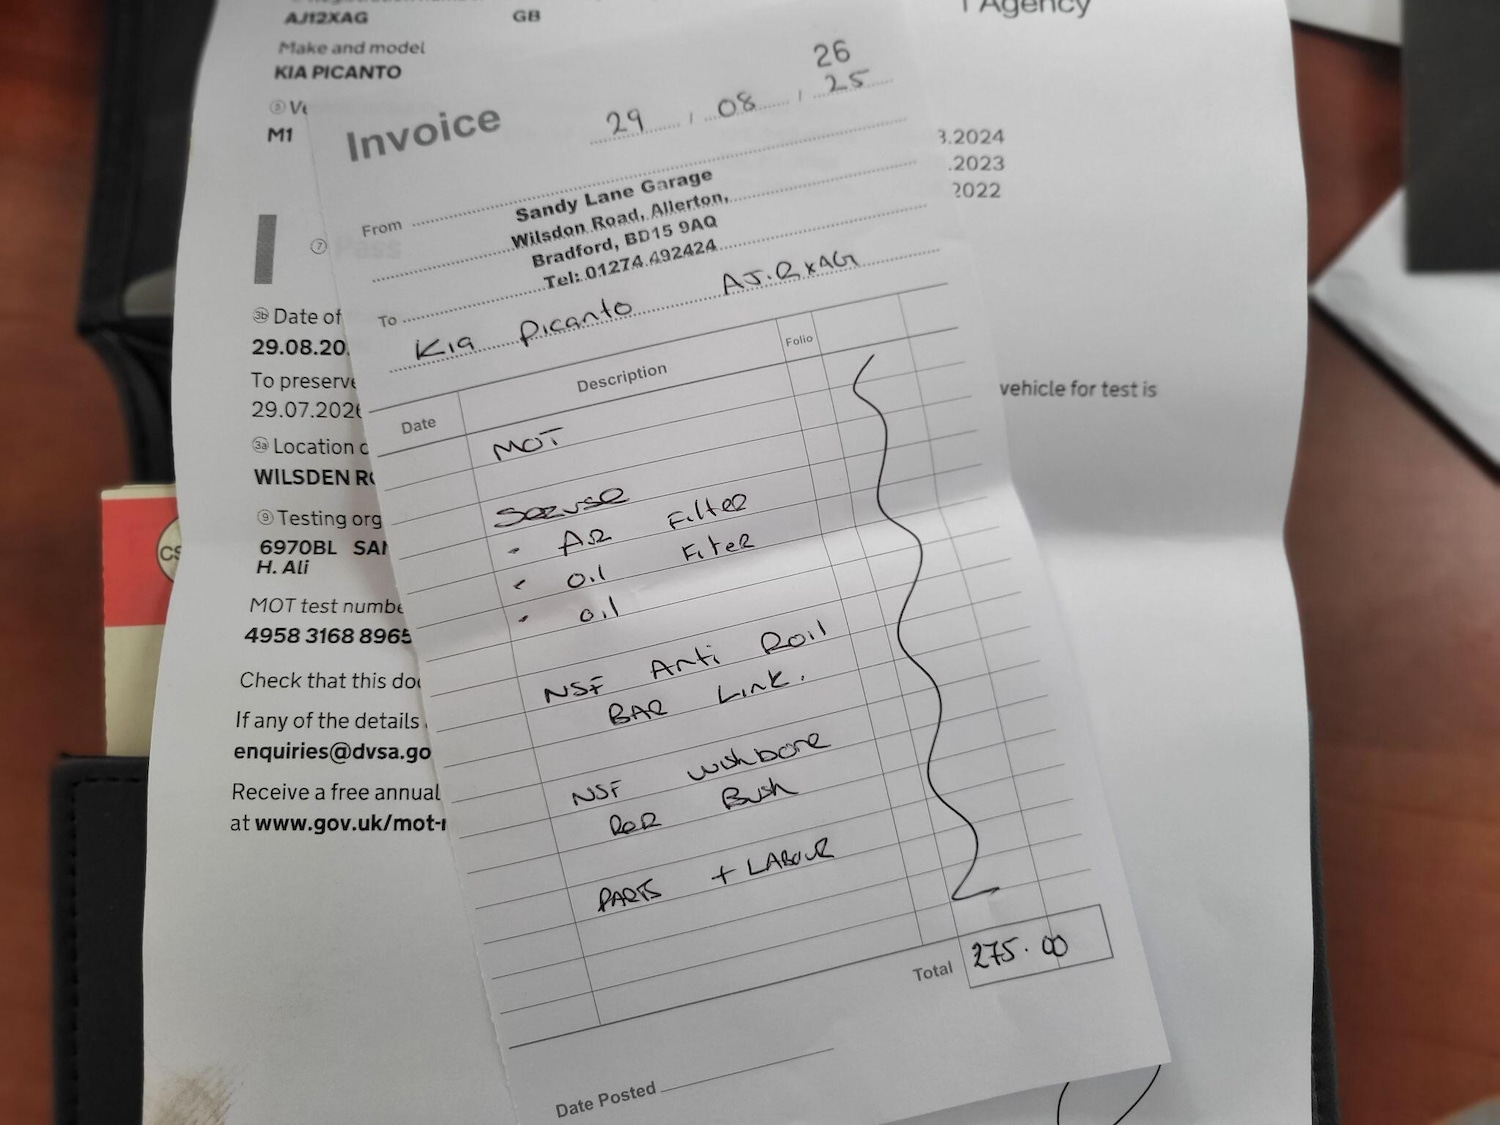 AJ12XAG GB
Agency
Make and model
KIA PICANTO
M1
Pass
3b Date of
29.08.20
To preserve
29.07.2026
3a Location o
WILSDEN RO
9 Testing org
6970BL SAN
H. Ali
MOT test numbe
4958 3168 8965
Check that this doc
If any of the details
enquiries@dvsa.go
Receive a free annual
at www.gov.uk/mot-r
.2024
.2023
2022
vehicle for test is
26
Invoice 29 / 08 / 25
From Sandy Lane Garage
Wilsdon Road, Allerton,
Bradford, BD15 9AQ
Tel: 01274 492424
To
Kia Picanto AJ12XAG
Date Description Folio
MOT
Service
- Air Filter
- Oil Filter
- Oil
NSF Anti Roll
BAR Link.
NSF Wishbone
Rear Bush
PARTS + LABOUR
Total 275.00
Date Posted
CS